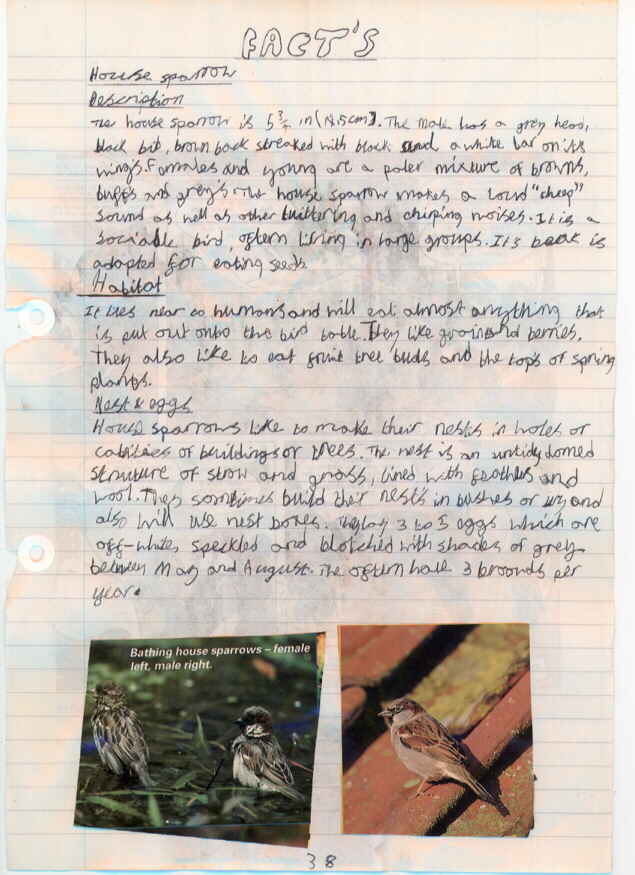 FACT'S
House sparrow
Description
The house sparrow is 5¾ in (14.5cm). The male has a grey head,
black bib, brown back streaked with black and a white bar on its
wing's. Females and young are a paler mixture of browns,
buffs and grey's. The house sparrow makes a loud "cheep"
sound as well as other twittering and chirping noises. It is a
sociable bird, oftern living in large groups. It's beak is
adapted for eating seeds.
Habitat
It lies near to humans and will eat almost anything that
is put out onto the bird table. They like grain and berries.
They also like to eat fruit tree buds and the tops of spring
plants.
Nest & eggs
House sparrows like to make their nests in holes or
cabities of buildings or trees. The nest is an untidy domed
structure of straw and grass, lined with feathers and
wool. They sometimes build their nests in bushes or ivy and
also will use nest boxes. They lay 3 to 5 eggs which are
off-white, speckled and blotched with shades of grey
between May and August. The oftern have 3 broods per
year.
Bathing house sparrows – female
left, male right.
38